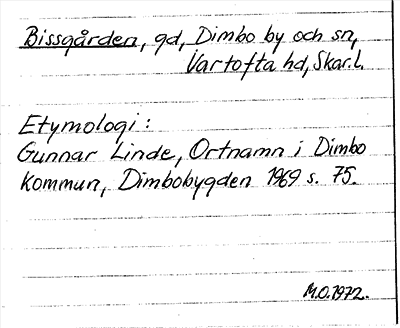 Bissgården, gd, Dimbo by och sn,
Vartofta hd, Skar.l.
Etymologi:
Gunnar Linde, Ortnamn i Dimbo
kommun, Dimbobygden 1969 s. 75.
M.O.1972.